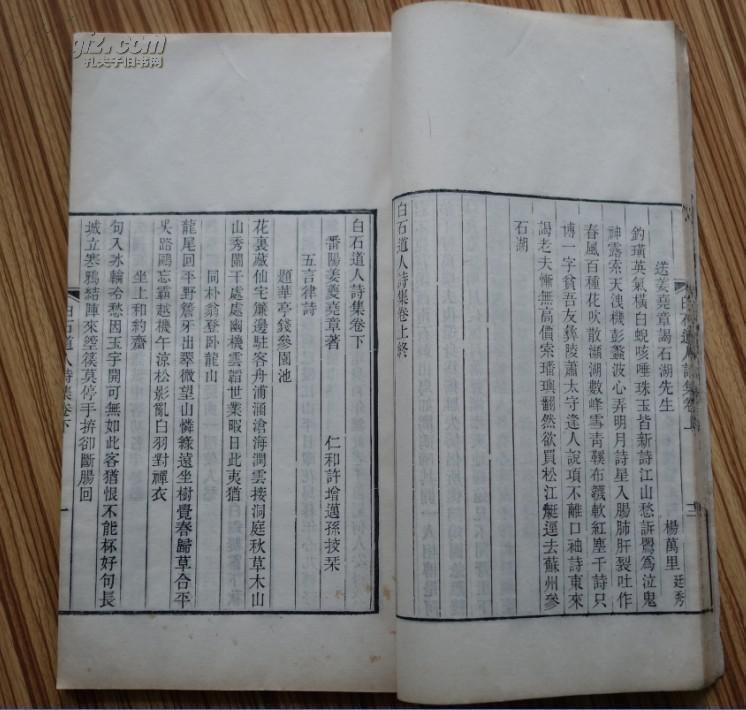 送姜堯章謁石湖先生
楊萬里 廷秀
釣璜英氣橫白蜺咳唾珠玉皆新詩江山愁訴鶯爲泣鬼
神露索天洩機彭蠡波心弄明月詩星入腸肺肝裂吐作
春風百種花吹散瀕湖數峰雪青鞵布韈軟紅塵千詩只
博一字貧吾友彝陵蕭太守逢人說項不離口袖詩東來
謁老夫慚無高價索璠璵翻然欲買松江艇逕去蘇州參
石湖
白石道人詩集卷上終
白石道人詩集卷上
三
白石道人詩集卷下
番陽姜夔堯章著
仁和許增邁孫挍栞
五言律詩
題華亭錢參園池
花裏藏仙宅簾邊駐客舟浦涵滄海潤雲接洞庭秋草木山
山秀闌干處處幽機雲韜世業暇日此夷猶
同朴翁登臥龍山
龍尾回平野簷牙出翠微望山憐綠遠坐樹覺春歸草合平
吳路鷗忘霸越機午涼松影亂白羽對禪衣
坐上和約齋
句入冰輪冷愁因玉宇開可無如此客猶恨不能杯好句長
城立寒鴉結陣來箜篌莫停手拚卻斷腸回
白石道人詩集卷下
一
孔夫子旧书网